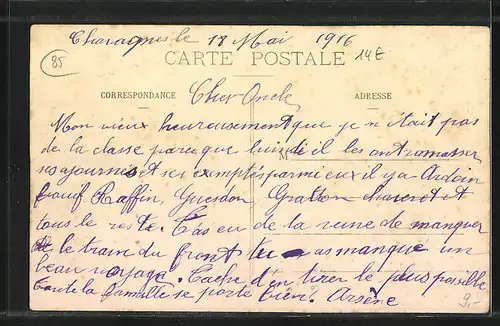 85
Chavagnes le 18 Mai 1916
14E
CARTE POSTALE
CORRESPONDANCE
ADRESSE
Cher Oncle
Mon vieux heureusement que je n'était pas
de la classe parce que lundi il les ont ramasser
ses ajournés et ses exemptés parmi eux il y a Ardoin
Raffin, Guesdon, Gratton et
tous le reste. T'as eu de la veine de manquer
de le train du front tu as manqué un
beau voyage. Tache d'en tirer le plus possible
toute la famille se porte bien. Arsène
9.-